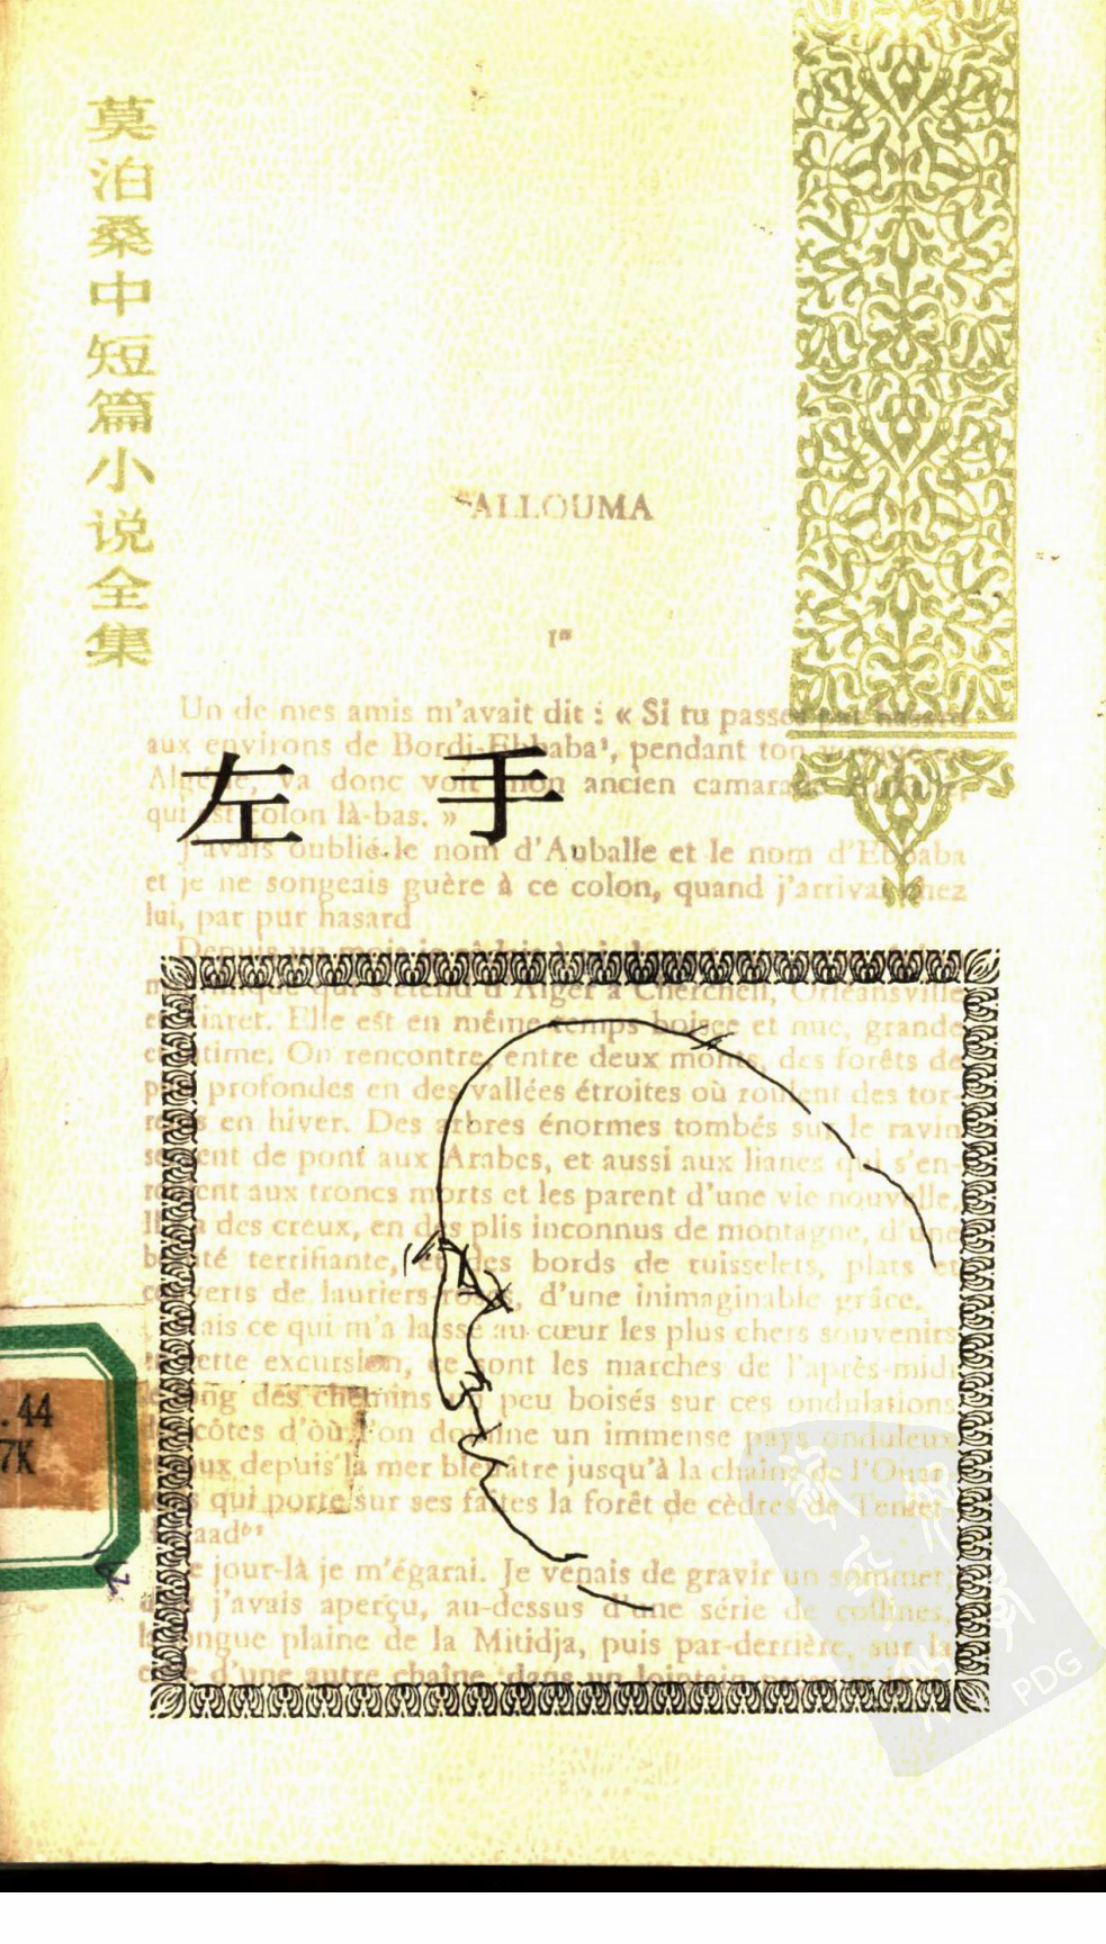 莫泊桑中短篇小说全集
ALLOUMA
I
Un de mes amis m'avait dit : « Si tu passes
aux environs de Bordj-Ebbaba¹, pendant ton voyage en
Algérie, va donc voir mon ancien camarade
qui est colon là-bas. »
左手
J'avais oublié le nom d'Auballe et le nom d'Ebbaba
et je ne songeais guère à ce colon, quand j'arrivai chez
lui, par pur hasard
Depuis un mois
qui s'étend d'Alger à Cherchell, Orléansville
et Tiaret. Elle est en même temps boisée et nue, grande
et intime. On rencontre, entre deux monts, des forêts de
pins profondes en des vallées étroites où roulent des tor-
rents en hiver. Des arbres énormes tombés sur le ravin
servent de pont aux Arabes, et aussi aux lianes qui s'en-
roulent aux troncs morts et les parent d'une vie nouvelle.
Il y a des creux, en des plis inconnus de montagne, d'une
beauté terrifiante, et des bords de ruisselets, plats et
couverts de lauriers-roses, d'une inimaginable grâce.
Mais ce qui m'a laissé au cœur les plus chers souvenirs
en cette excursion, ce sont les marches de l'après-midi
le long des chemins un peu boisés sur ces ondulations
des côtes d'où l'on domine un immense pays onduleux
et roux depuis la mer bleuâtre jusqu'à la chaîne de l'Ouar-
qui porte sur ses faîtes la forêt de cèdres de Teniet-
.44
7K
Ce jour-là je m'égarai. Je venais de gravir un sommet,
d'où j'avais aperçu, au-dessus d'une série de collines,
la longue plaine de la Mitidja, puis par-derrière, sur la
crête d'une autre chaîne, dans un lointain
PDG